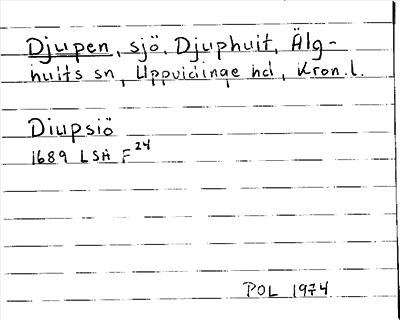 Djupen, sjö, Djuphult, Älg-
hults sn, Uppvidinge hd, Kron.l.
Diupsiö
1689 LSA F 24
POL 1974